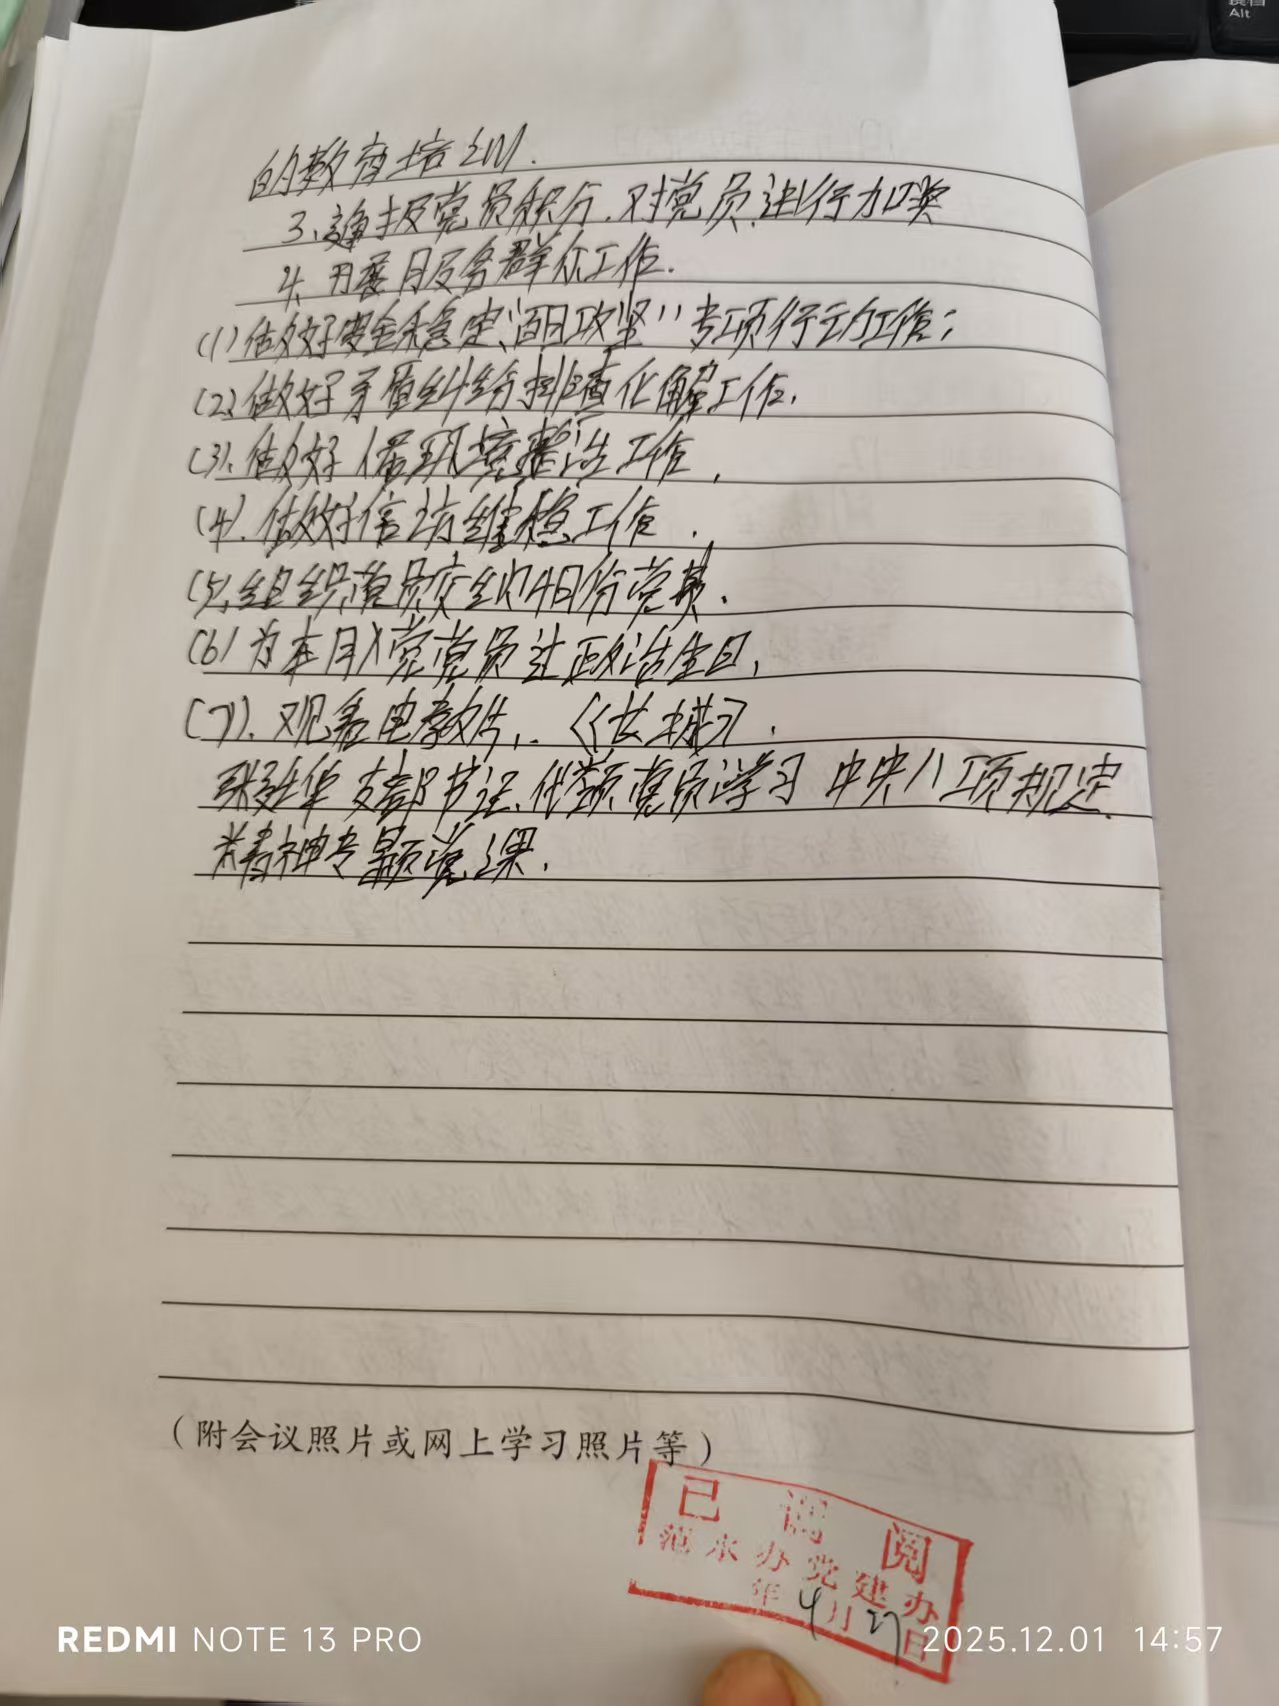 的教育培训.
3、通报党员积分.对党员进行加奖
4、开展服务群众工作.
(1)做好安全稳定"百日攻坚"专项行动工作;
(2)做好矛盾纠纷排查化解工作.
(3).做好人居环境整治工作.
(4).做好信访维稳工作.
(5).组织党员交纳4月份党费.
(6)为本月入党党员过政治生日.
(7).观看电教片..《》.
华支部书记.党员学习中央八项规定
精神专题党课.
(附会议照片或网上学习照片等)
已 阅
水办党建办
年4月27日
REDMI NOTE 13 PRO
2025.12.01 14:57
Alt